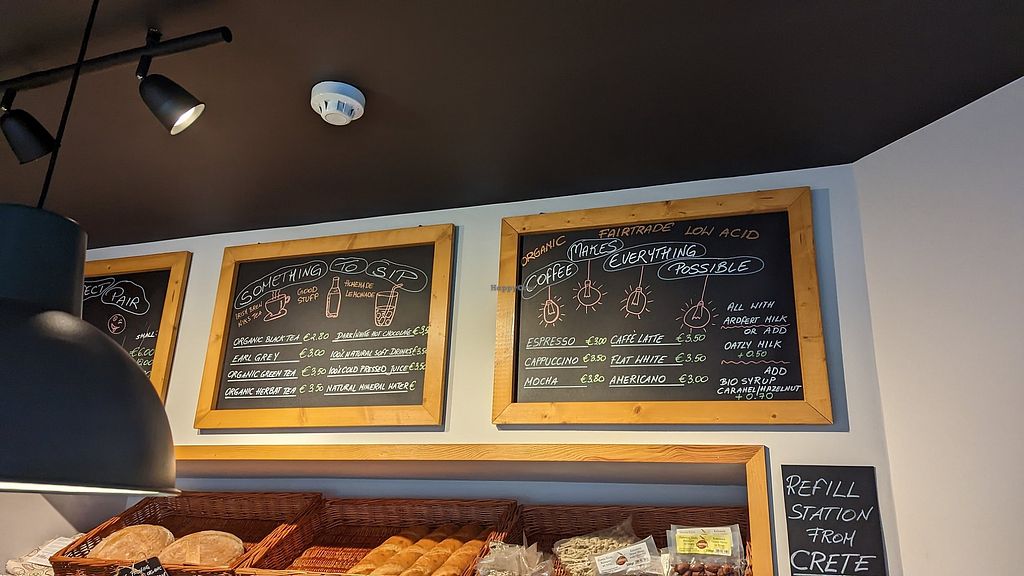 PAIR
SMALL:
€6.00
SOMETHING TO SIP
GOOD
STUFF
HOMEMADE
LEMONADE
ORGANIC BLACK TEA €2.80
DARK/WHITE HOT CHOCOLATE €3.5
EARL GREY €3.00
100% NATURAL SOFT DRINKS €3.50
ORGANIC GREEN TEA €3.50
100% COLD PRESSED JUICE €3.50
ORGANIC HERBAL TEA €3.50
NATURAL MINERAL WATER €
ORGANIC FAIRTRADE' LOW ACID
COFFEE MAKES EVERYTHING POSSIBLE
ESPRESSO €3.00 CAFFÈ LATTE €3.50
CAPPUCCINO €3.50 FLAT WHITE €3.50
MOCHA €3.80 AMERICANO €3.00
ALL WITH
ARDFERT MILK
OR ADD
OATLY MILK
+0.50
ADD
BIO SYRUP
CARAMEL/HAZELNUT
+0.70
REFILL
STATION
FROM
CRETE